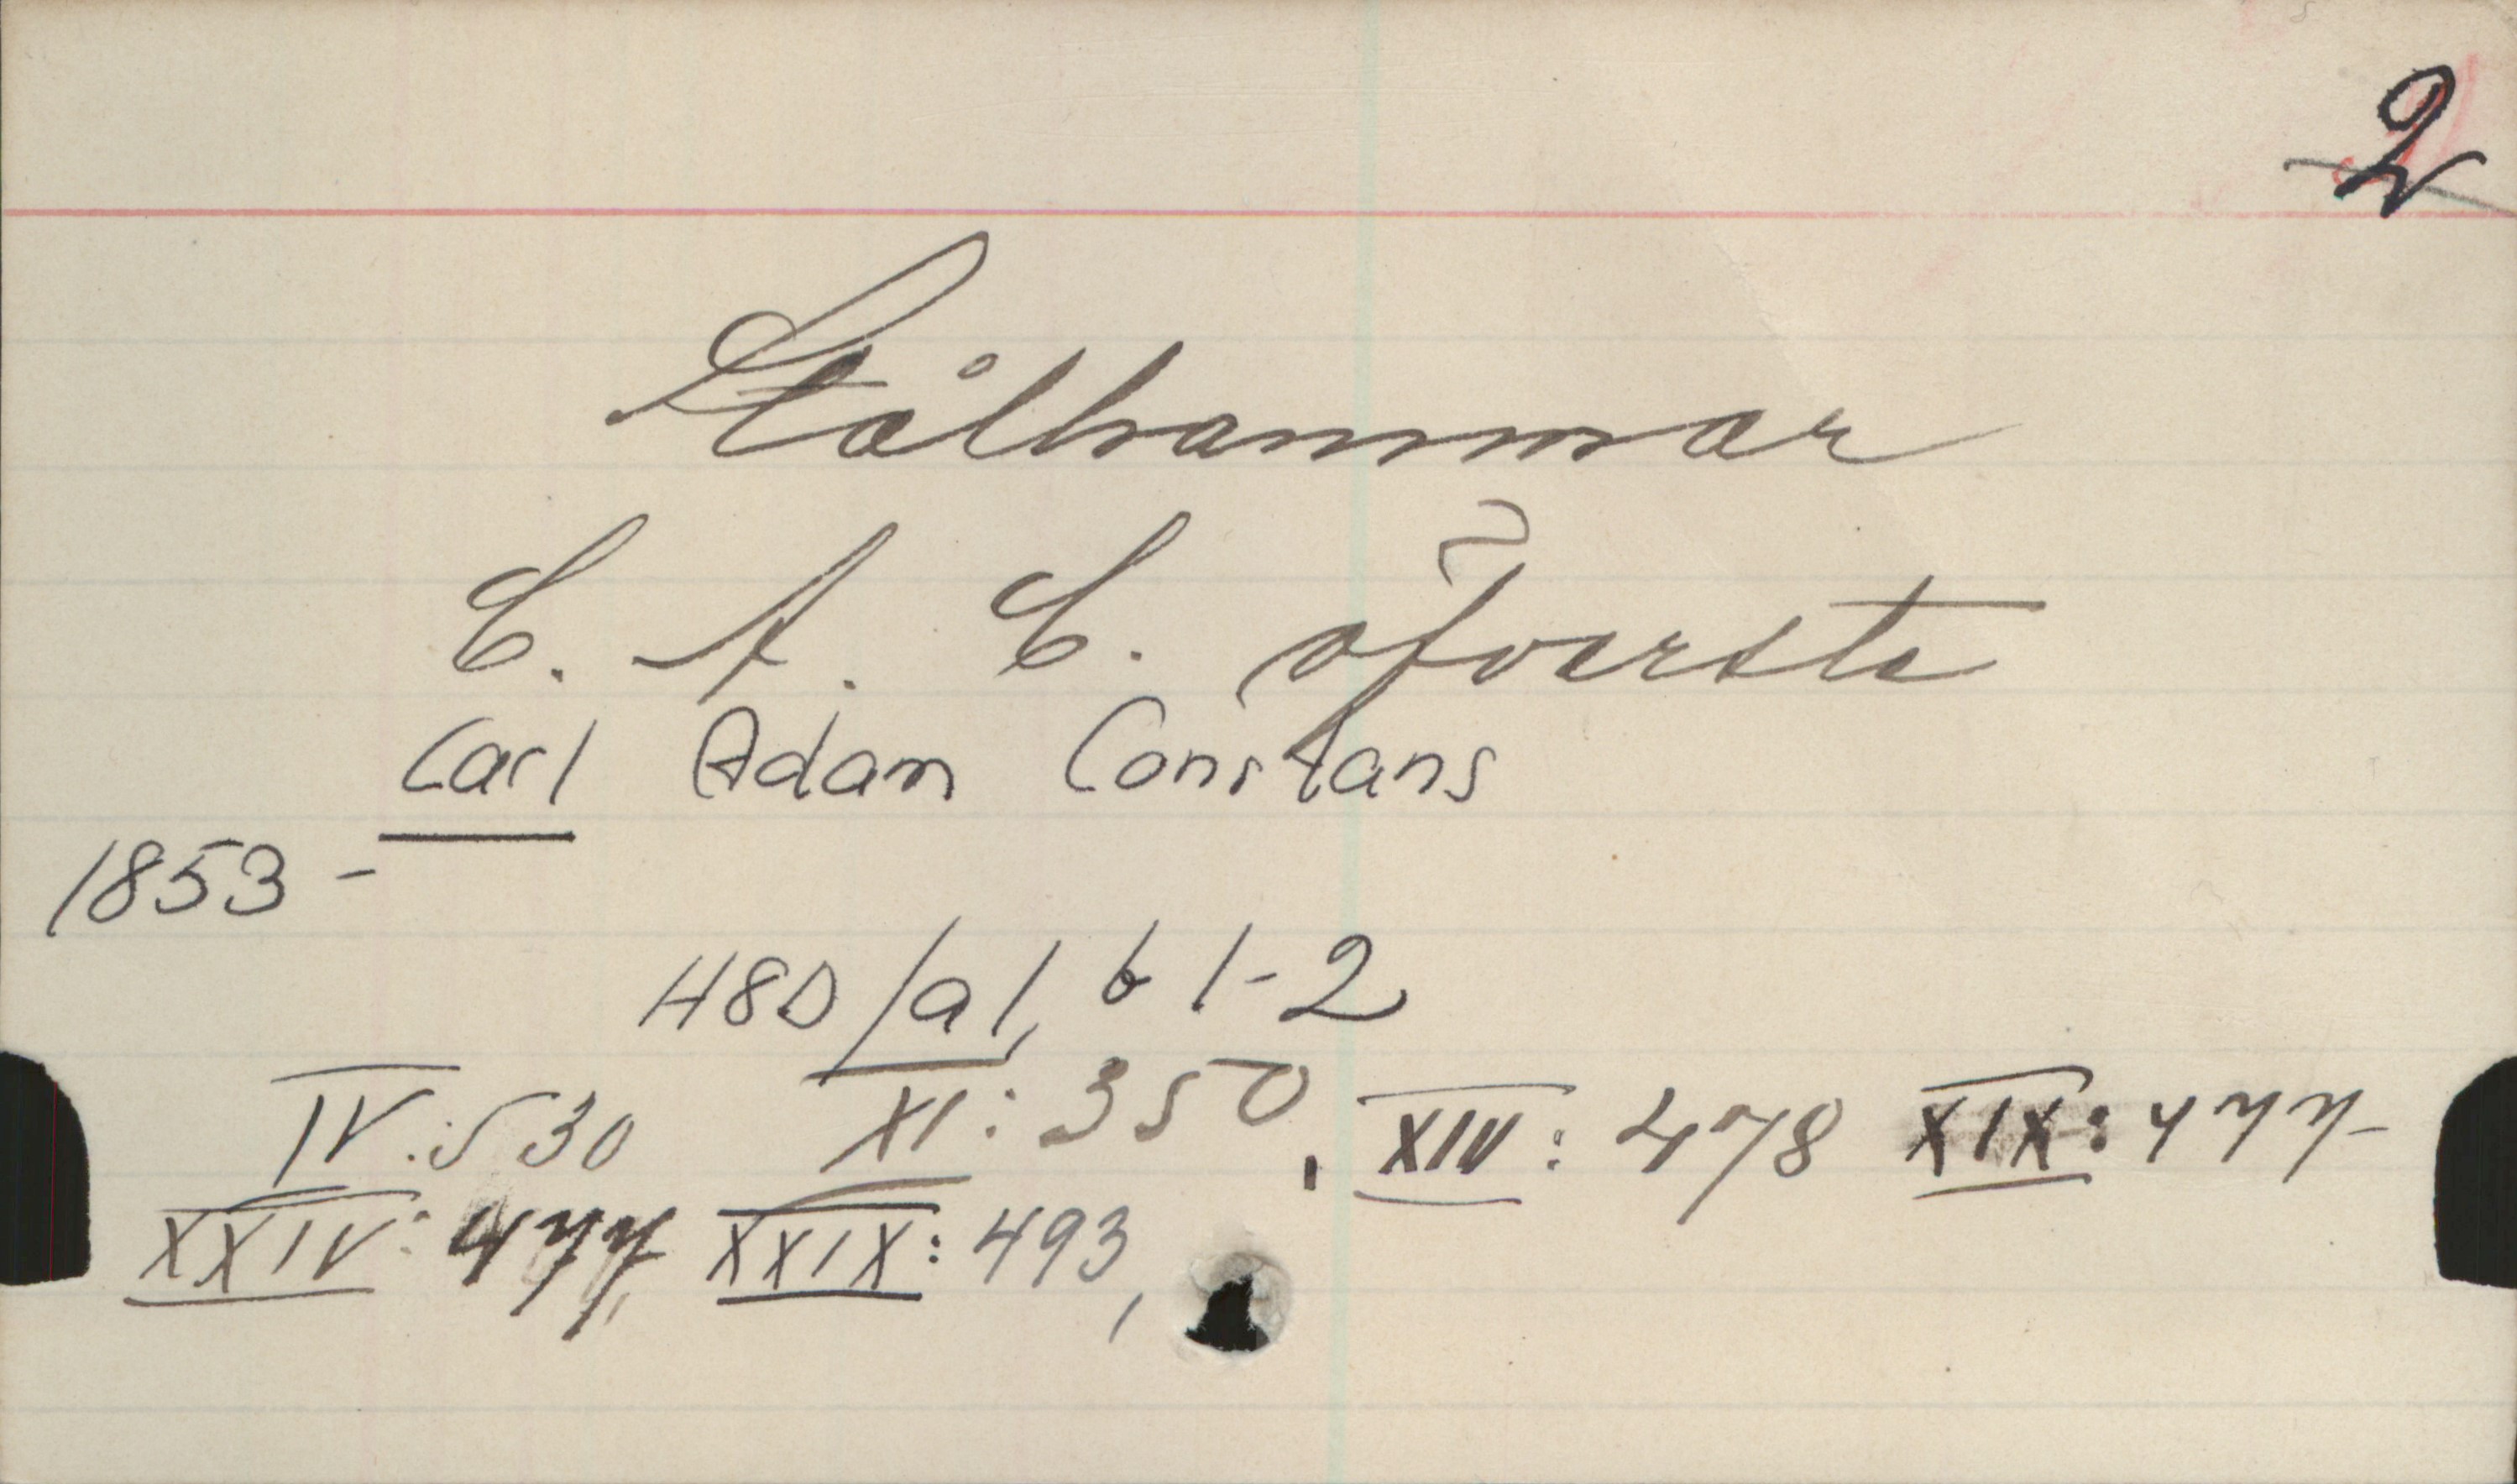 2
Stålhammar
C. A. C. öfverste
Carl Adam Constans
1853 -
H8D/a1, b 1-2
IV:530 XI:350, XIV:478 XIX:477
XXIV:477, XXIX:493,